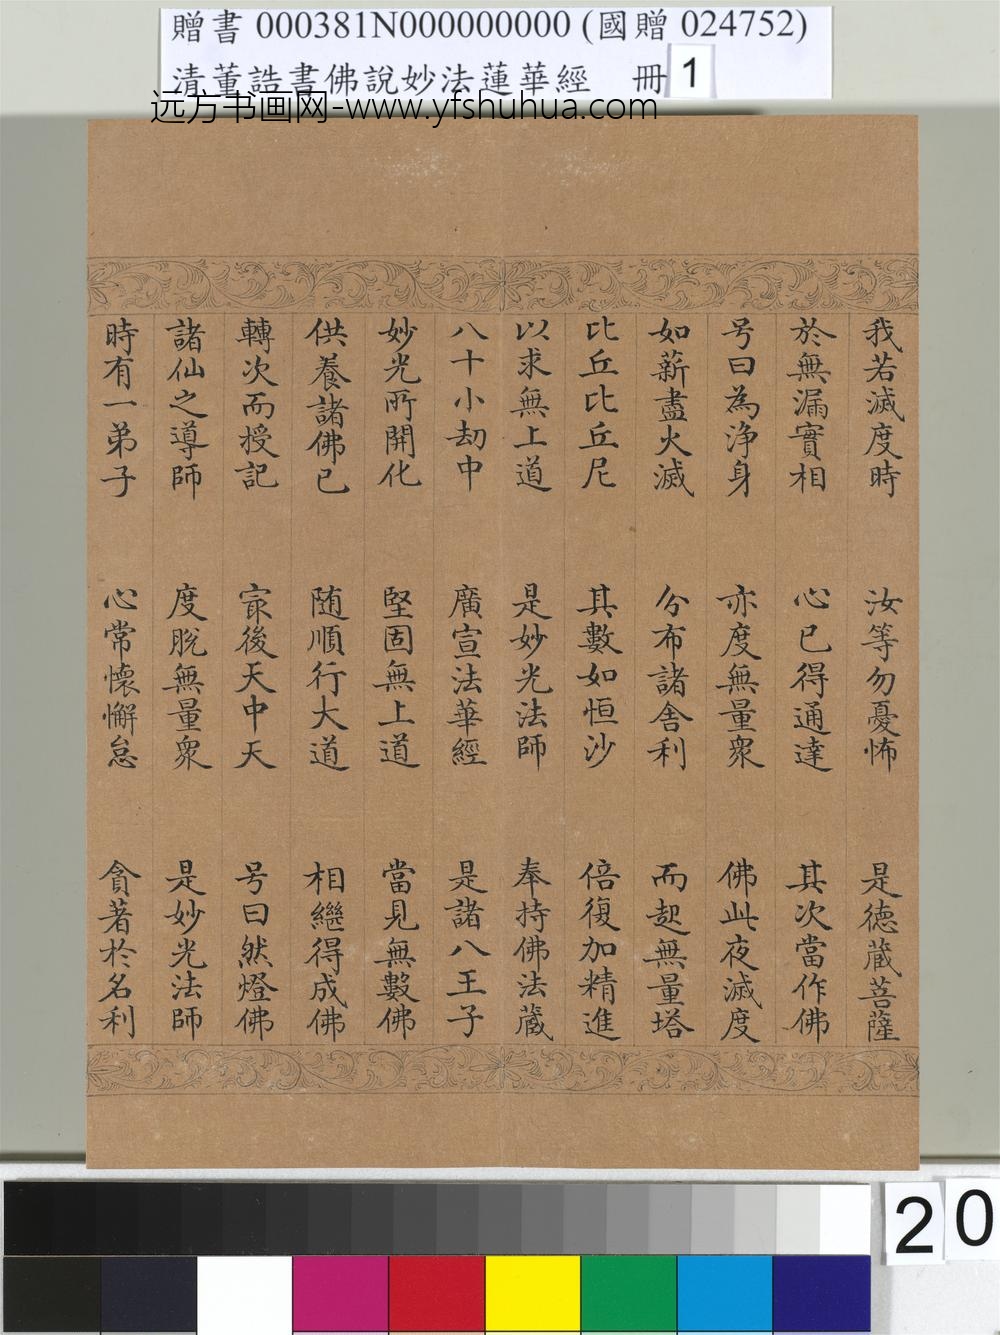 贈書 000381N000000000 (國贈 024752)
清董誥書佛說妙法蓮華經 冊 1
远方书画网-www.yfshuhua.com
我若滅度時 汝等勿憂怖 是德蔵菩薩
於無漏實相 心已得通達 其次當作佛
号曰為淨身 亦度無量眾 佛此夜滅度
如薪盡火滅 分布諸舍利 而起無量塔
比丘比丘尼 其數如恒沙 倍復加精進
以求無上道 是妙光法師 奉持佛法蔵
八十小劫中 廣宣法華經 是諸八王子
妙光所開化 堅固無上道 當見無數佛
供養諸佛已 随順行大道 相繼得成佛
轉次而授記 㝡後天中天 号曰然燈佛
諸仙之導師 度脫無量眾 是妙光法師
時有一弟子 心常懷懈怠 貪著於名利
20